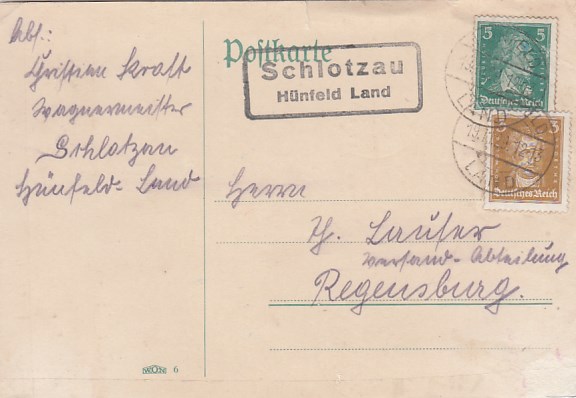 Abs.:
Christian Kraft
Wagnermeister
Schlotzau
Hünfeld-Land
Postkarte
Schlotzau
Hünfeld Land
5 5
Deutsches Reich
3 3
Deutsches Reich
LAND
LAND
Herrn
Th. Lauser
Versand-Abteilung
Regensburg.
6